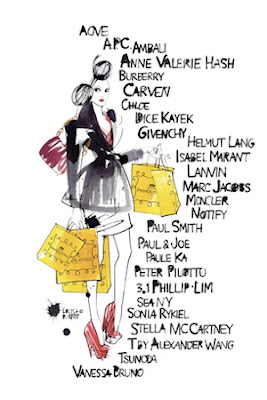 AOVE
A.P.C. AMBALI
ANNE VALERIE HASH
BURBERRY
CARVEN
CHLOE
IDICE KAYEK
GIVENCHY
HELMUT LANG
ISABEL MARANT
LANVIN
MARC JACOBS
MONCLER
NOTIFY
PAUL SMITH
PAUL & JOE
PAULE KA
PETER PILOTTO
3.1 PHILLIP·LIM
SEA NY
SONIA RYKIEL
STELLA MCCARTNEY
T BY ALEXANDER WANG
TSUNODA
VANESSA BRUNO